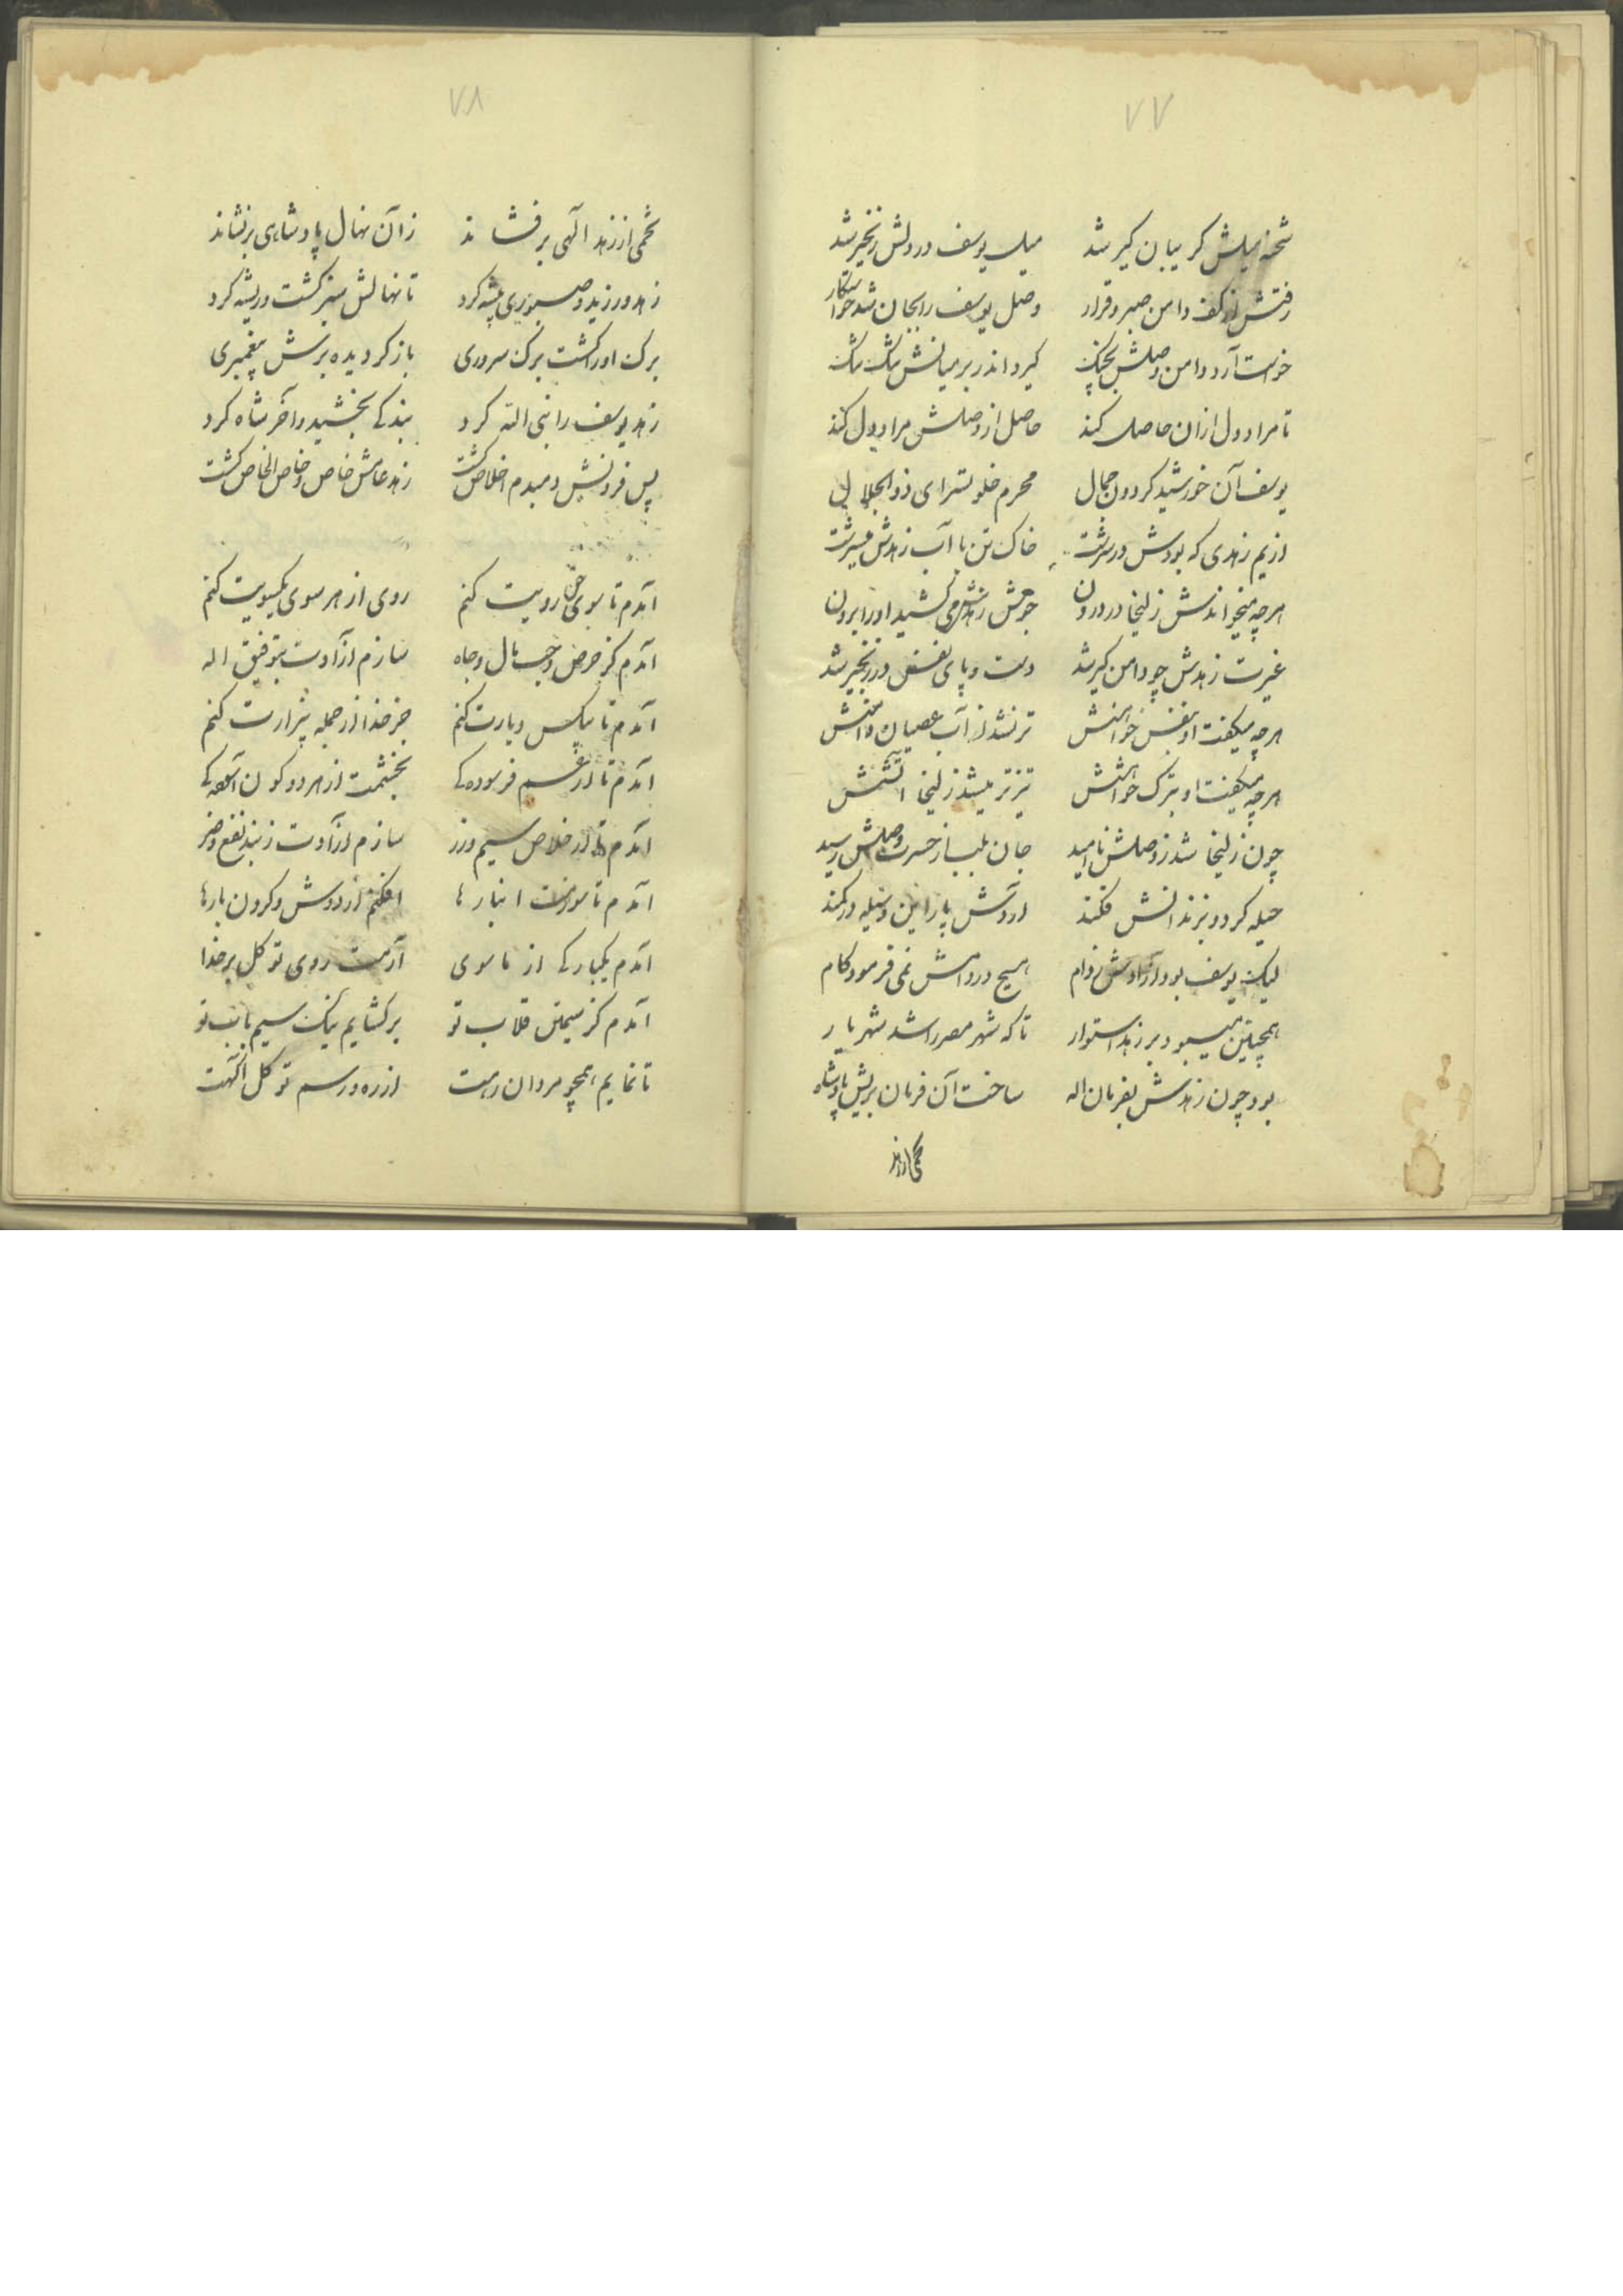 ۷۷
شحنه میلش کریبان کیر شد میل یوسف در دلش زنجیر شد
رفتش از کف دامن صبر و قرار وصل یوسف را بجان شد خواستکار
خواست آرد دامن وصلش بچنک کیرد اندر بر میانش تنک تنک
تا مراد دل ازان حاصل کند حاصل از وصلش مراد دل کند
یوسف آن خورشید کردون جمال محرم خلوتسرای ذوالجلال
ازیم زهدی که بودش در سرشت خاک تن با آب زهدش میسرشت
هرچه میخواندش زلیخا در درون جوشش زهدش می کشید او را برون
غیرت زهدش چو دامن کیر شد دست و پای نفس در زنجیر شد
هرچه میکفت او بنفس خواهنش تر نشد از آب عصیان دامنش
هرچه میکفت او بترک خواهشش تیزتر میشد زلیخا آتشش
چون زلیخا شد ز وصلش ناامید جان بلب از حسرت وصلش رسید
حیله کرد و بزندانش فکند آردش پا زاین وسیله در کمند
لیک یوسف بود آزادش ز دام هیچ در دامش نمی فرمود کام
همچنین میبود بر زهد استوار تا که شهر مصر را شد شهریار
بود چون زهدش بفرمان اله ساخت آن فرمان بریش پادشاه
تخمی از زهد
۷۸
تخمی از زهد آلهی برفشاند زآن نهال پادشاهی برنشاند
زهد ورزید و صبوری پیشه کرد تا نهالش سبز کشت و ریشه کرد
برک او را کشت برک سروری باز کردیده برش پیغمبری
زهد یوسف را نبی الله کرد بندکی بخشید و آخر شاه کرد
پس فزونش دمبدم اخلاص کشت زهد عامش خاص و خاص الخاص کشت
آمدم تا سوی حق رویت کنم روی از هر سوی یکسویت کنم
آمدم کز حرص و حب مال و جاه سازم آزادت بتوفیق اله
آمدم تا بیکس و یارت کنم جز خدا از جمله بیزارت کنم
آمدم تا از غم فرسودکی بخشمت از هر دو کون آسودکی
آمدم تا از خلاص سیم و زر سازم آزادت ز بند نفع و ضر
آمدم تا سوزمت انبارها افکنم از دوش و کردن بارها
آمدم یکبارکی از ماسوی آرمت روی توکل بر خدا
آمدم کز سیمتن قلاب تو برکشایم نیک سیم ناب تو
تا نمایم همچو مردان رهت از ره و رسم توکل آکهت